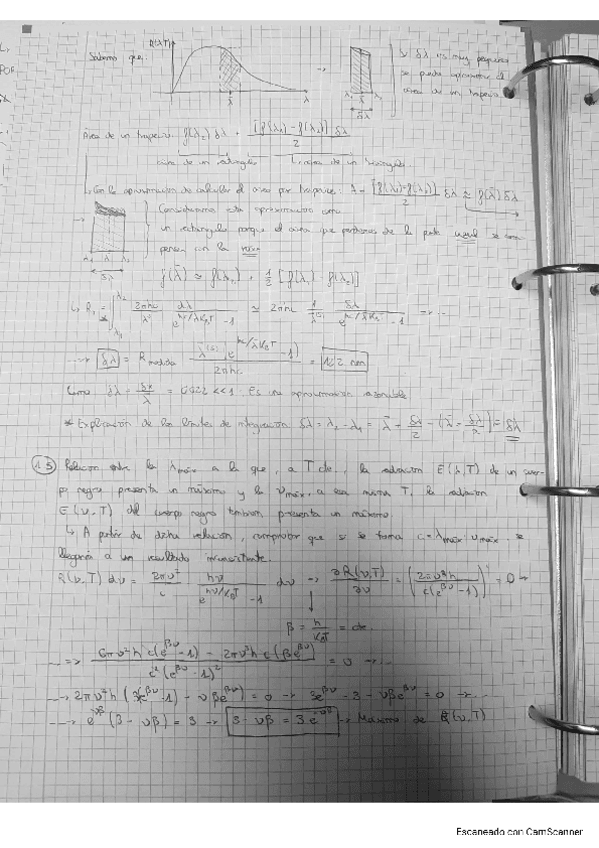 Sabemos que: R(λ,T) λ̄ λ → λ₁ λ̄ λ₂ δλ Si δλ es muy pequeño
se puede aproximar el
área de un trapecio
Área de un trapecio: f(λ₂) δλ + [f(λ₁) - f(λ₂)] δλ / 2
área de un rectángulo área de un triángulo.
Con la aproximación de calcular el área por trapecios: A = [f(λ₁)-f(λ₂)] / 2 δλ ≃ f(λ̄) δλ
Consideramos esta aproximación como
un rectángulo porque el área que perdemos de la parte azul se com
pensa con la
λ₁ λ̄ λ₂
δλ
f(λ̄) ≃ f(λ₁) + 1/2 [f(λ₁) - f(λ₂)]
δλ = R medida λ̄⁽⁵⁾(e^(hc/λ̄K_BT) - 1) / 2πhc = 122 nm
Como = 0.022 <<1. Es una aproximación razonable
* Explicación de los límites de integración δλ = λ₂ - λ₁ = λ̄ + δλ/2 - (λ̄ - δλ/2) = δλ
1.5 Relación entre la λmáx a la que, a T cte., la radiación E(λ,T) de un cuer-
po negro presenta un máximo y la νmáx, a esa misma T, la radiación
E(ν,T) del cuerpo negro también presenta un máximo.
↳ A partir de dicha relación, comprobar que si se toma c = λmáx · νmáx se
llegaría a un resultado inconsistente.
R(ν,T) dν = 2πν²/c hν/(e^(hν/K_BT) - 1) dν → ∂R(ν,T)/∂ν = (2πν³h / c(e^(βν) - 1))' = 0 →
β = h/K_BT = cte.
→ 6πν²h c(e^(βν) - 1) - 2πν³h c(βe^(βν)) / c²(e^(βν) - 1)² = 0 → ...
→ 2πν²h (3(e^(βν) - 1) - νβe^(βν)) = 0 → 3e^(βν) - 3 - νβe^(βν) = 0 → ...
→ e^(νβ) (3 - νβ) = 3 → 3 - νβ = 3e^(-νβ) → Máximo de R(ν,T)
Escaneado con CamScanner